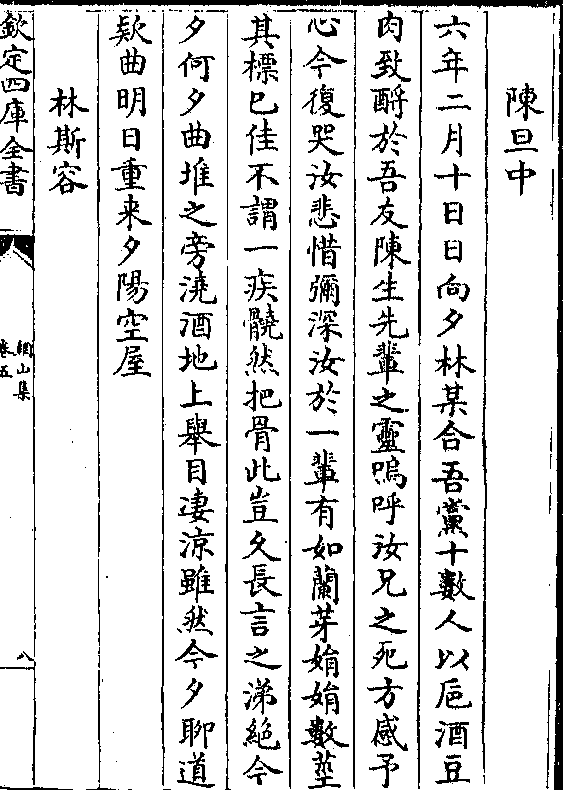 陳旦中
六年二月十日日向夕林某合吾黨十數人以巵酒豆
肉致酹於吾友陳生先輩之靈嗚呼汝兄之死方感予
心今復哭汝悲惜彌深汝於一輩有如蘭芽娟娟數莖
其標已佳不謂一疾髐然把骨此豈久長言之涕絶今
夕何夕曲堆之旁澆酒地上舉目凄涼雖然今夕聊道
欵曲明日重来夕陽空屋
林斯容
欽定四庫全書
網山集
卷五
八